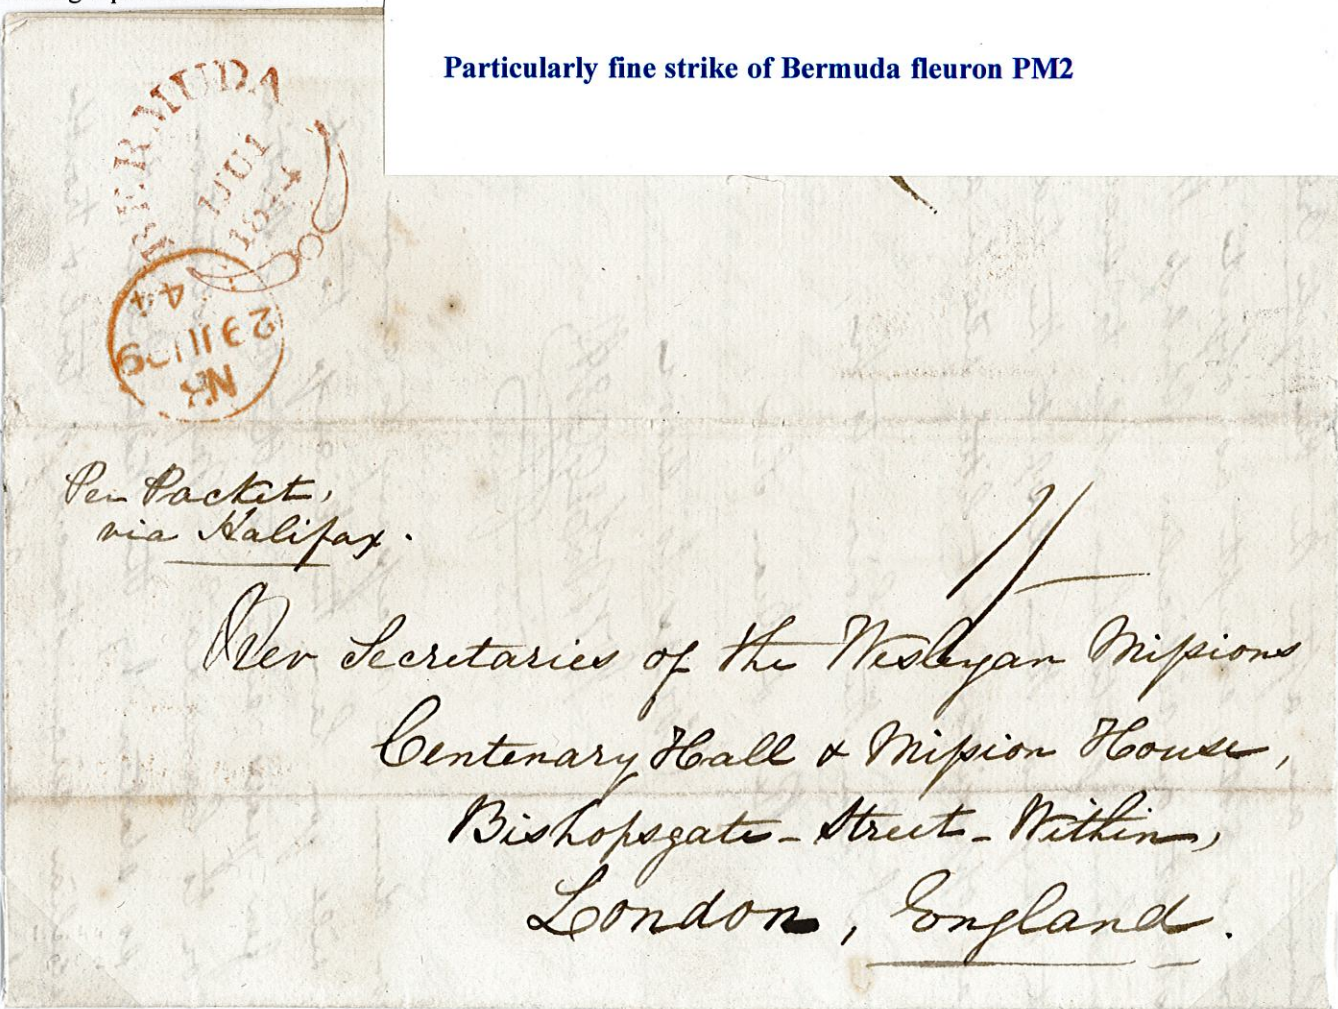 Particularly fine strike of Bermuda fleuron PM2
BERMUDA
1 JU 1
1844
44
29 JU 29
NK
Per Packet,
via Halifax.
1/
Rev Secretaries of the Wesleyan Missions
Centenary Hall & Mission House,
Bishopsgate - Street - Within,
London, England.